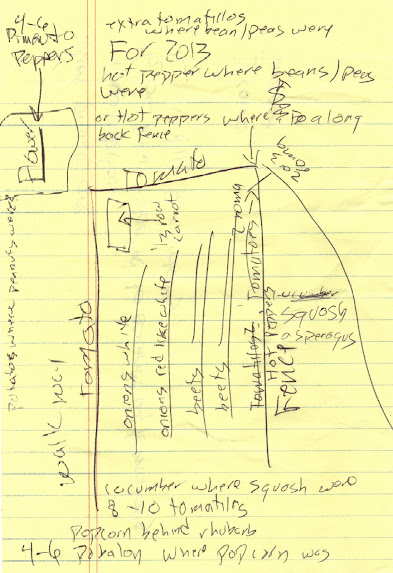 4-6
Pimento
Peppers
extra tomatillos
where bean/peas were
For 2013
hot pepper where beans/peas
were
or Hot peppers where to along
back fence
Flower
Tomato
1/2 row
carrot
onions white
onions red like white
beets
beets
2 roma
Tomatoes
Hot Peppers
Fence
squash
asperagus
Tomato
walk way
potatoes where peanuts were
cocumber where squash were
8-10 tomatillos
Popcorn behind rhubarb
4-6 where popcorn was